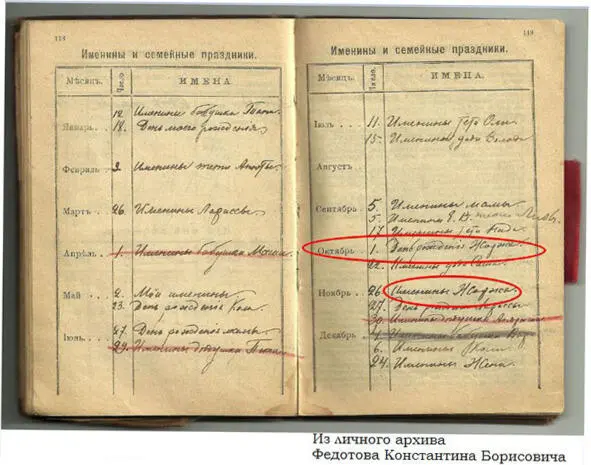 118
Именины и семейные праздники.
Мѣсяцъ. Число. ИМЕНА.
12. Именины бабушки Тани
Январь.. 18. День моего рожденія
Февраль. 3. Именины тети Анюты
Мартъ.. 26. Именины Лариссы
Апрѣль. 1. Именины бабушки
Май .. 2. Мои именины
23. День рожденія Коли
27. День рожденія мамы
Іюнь.. 29. Именины дѣдушки
119
Именины и семейные праздники.
Мѣсяцъ. Число. ИМЕНА.
Іюль ... 11. Именины тети Оли
15. Именины дяди Володи
Августъ .
Сентябрь . 5. Именины мамы
5. Именины Е. В.
17. Именины тети Нади
Октябрь . 1. День рожденія Жоржа
22. Именины дяди Саши
Ноябрь . 26. Именины Жоржа
27. День
30. Именины дѣдушки
Декабрь . 4. Именины бабушки Вари
6. Именины Коли
24. Именины Жени
Из личного архива
Федотова Константина Борисовича